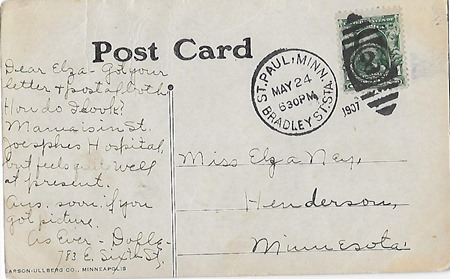 Post Card
Dear Elza - Got your
letter & postal both
How do I look?
Mama is in St.
Joesphes Hospital,
but feels quite well
at present.
Ans. soon if you
got picture.
As Ever -
783 E. Sixth St,
ST. PAUL, MINN.
MAY 24
630PM
BRADLEY ST. STA.
1907
Miss Elza Ney,
Henderson,
Minnesota.
LARSON-ULLBERG CO., MINNEAPOLIS